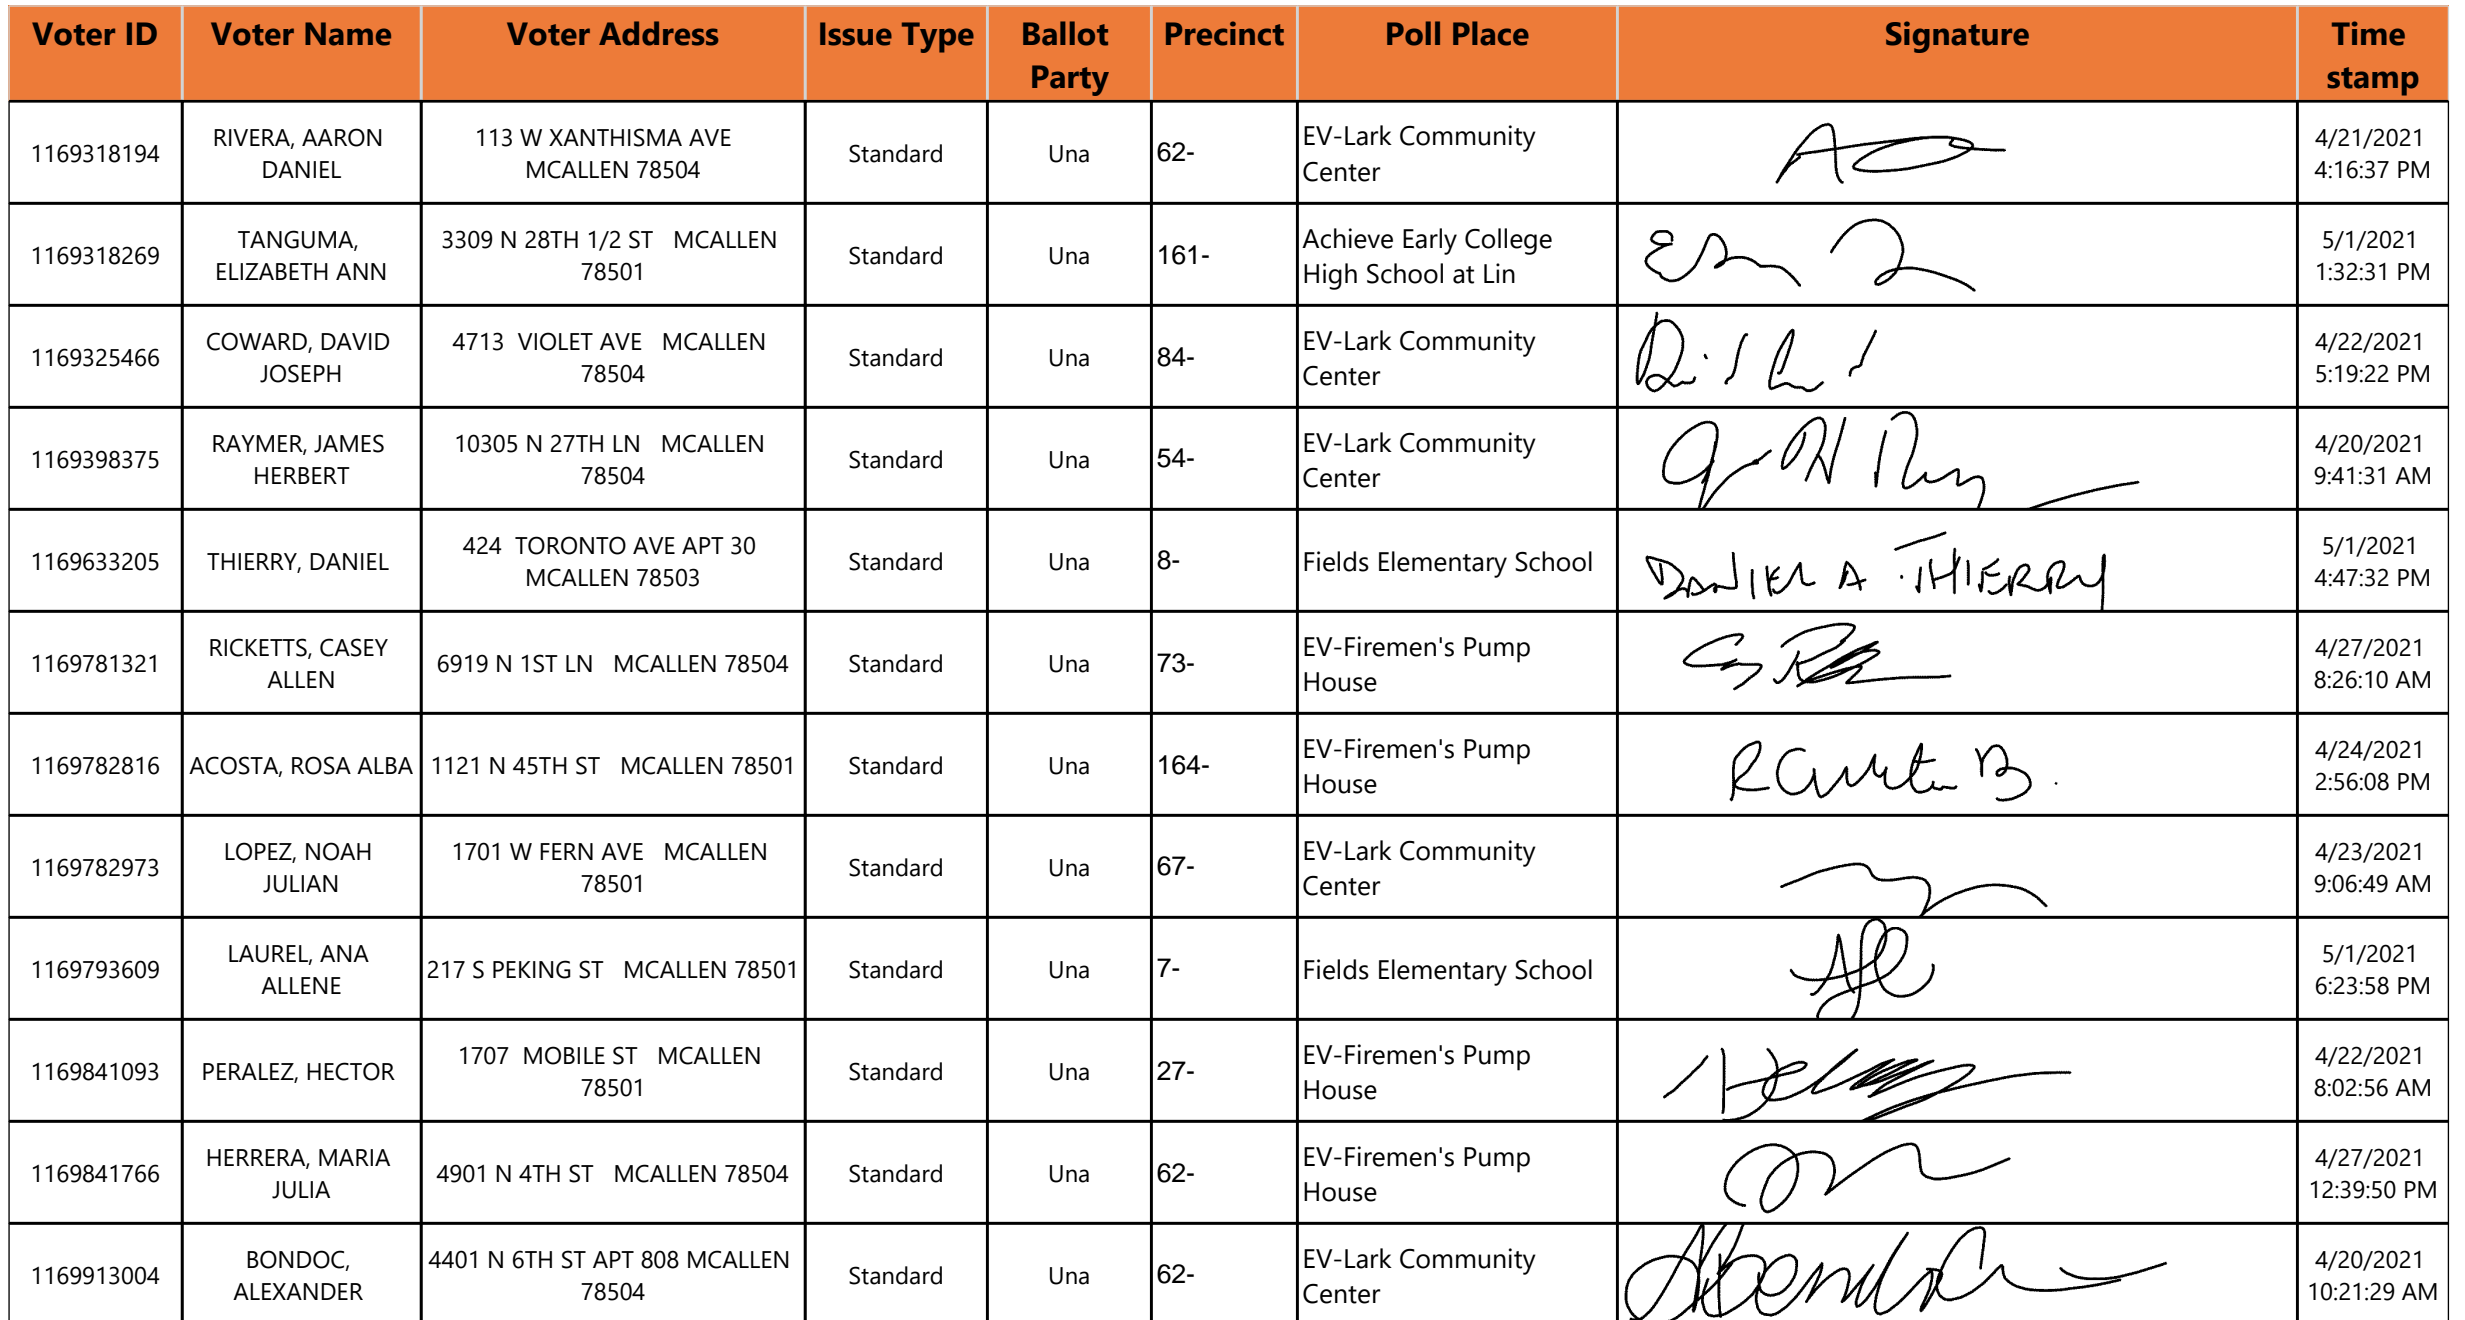 Voter ID Voter Name Voter Address Issue Type Ballot Party Precinct Poll Place Signature Time stamp
1169318194 RIVERA, AARON DANIEL 113 W XANTHISMA AVE MCALLEN 78504 Standard Una 62- EV-Lark Community Center 4/21/2021 4:16:37 PM
1169318269 TANGUMA, ELIZABETH ANN 3309 N 28TH 1/2 ST MCALLEN 78501 Standard Una 161- Achieve Early College High School at Lin 5/1/2021 1:32:31 PM
1169325466 COWARD, DAVID JOSEPH 4713 VIOLET AVE MCALLEN 78504 Standard Una 84- EV-Lark Community Center 4/22/2021 5:19:22 PM
1169398375 RAYMER, JAMES HERBERT 10305 N 27TH LN MCALLEN 78504 Standard Una 54- EV-Lark Community Center 4/20/2021 9:41:31 AM
1169633205 THIERRY, DANIEL 424 TORONTO AVE APT 30 MCALLEN 78503 Standard Una 8- Fields Elementary School DANIEL A THIERRY 5/1/2021 4:47:32 PM
1169781321 RICKETTS, CASEY ALLEN 6919 N 1ST LN MCALLEN 78504 Standard Una 73- EV-Firemen's Pump House 4/27/2021 8:26:10 AM
1169782816 ACOSTA, ROSA ALBA 1121 N 45TH ST MCALLEN 78501 Standard Una 164- EV-Firemen's Pump House 4/24/2021 2:56:08 PM
1169782973 LOPEZ, NOAH JULIAN 1701 W FERN AVE MCALLEN 78501 Standard Una 67- EV-Lark Community Center 4/23/2021 9:06:49 AM
1169793609 LAUREL, ANA ALLENE 217 S PEKING ST MCALLEN 78501 Standard Una 7- Fields Elementary School 5/1/2021 6:23:58 PM
1169841093 PERALEZ, HECTOR 1707 MOBILE ST MCALLEN 78501 Standard Una 27- EV-Firemen's Pump House 4/22/2021 8:02:56 AM
1169841766 HERRERA, MARIA JULIA 4901 N 4TH ST MCALLEN 78504 Standard Una 62- EV-Firemen's Pump House 4/27/2021 12:39:50 PM
1169913004 BONDOC, ALEXANDER 4401 N 6TH ST APT 808 MCALLEN 78504 Standard Una 62- EV-Lark Community Center 4/20/2021 10:21:29 AM